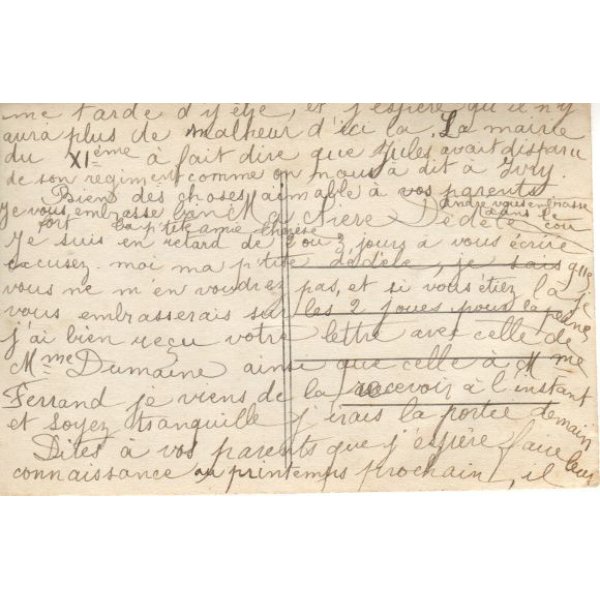 me tarde d'y être, et j'espère qu'il n'y
aura plus de malheur d'ici la. La mairie
du XIème à fait dire que Jules avait disparu
de son regiment comme on nous à dit à Ivry.
Biens des choses aimable à vos parents
andre vous embrasse
dans le
cou
Je vous embrasse bien ma chere Dédèle
fort la p'tite amie Thérèse
Je suis en retard de 2 ou 3 jours à vous écrire
excusez moi ma p'tite dédèle, je sais que
vous ne m'en voudrez pas, et si vous étiez la je
vous embrasserais sur les 2 joues pour la peine,
j'ai bien reçu votre lettre avec celle de
Mme Dumaine ainsi que celle à Mme
Ferrand je viens de la recevoir à l'instant
et soyez tranquille j'irais la portée demain
Dites à vos parents que j'espère faire leur
connaissance au printemps prochain, il